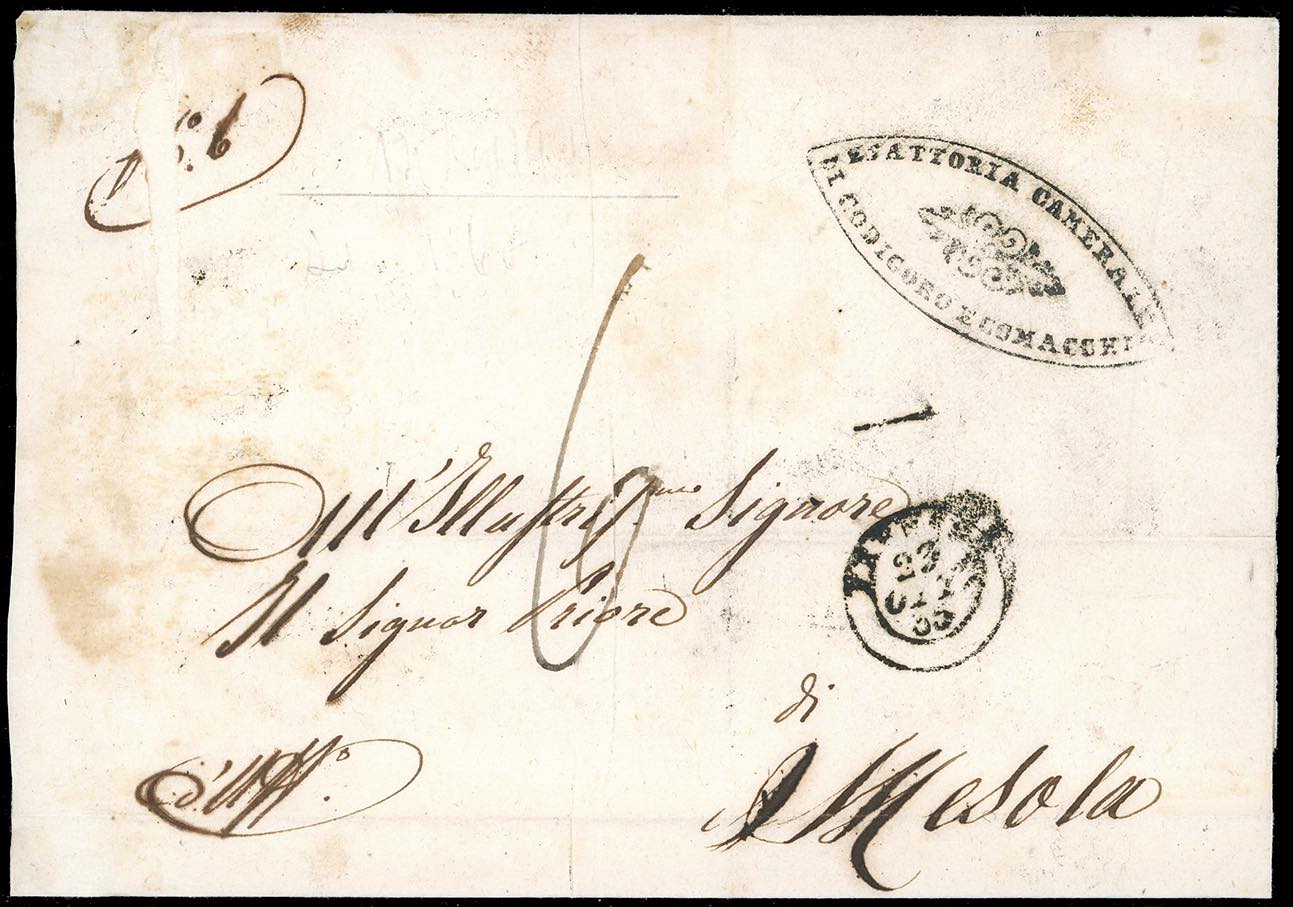 N.° 6
ESATTORIA CAMERALE
DI CODIGORO E COMACCHI
6
All'Illustriss.mo Signore
Il Signor Priore
23
55
di
Mesola
d'Uff.°